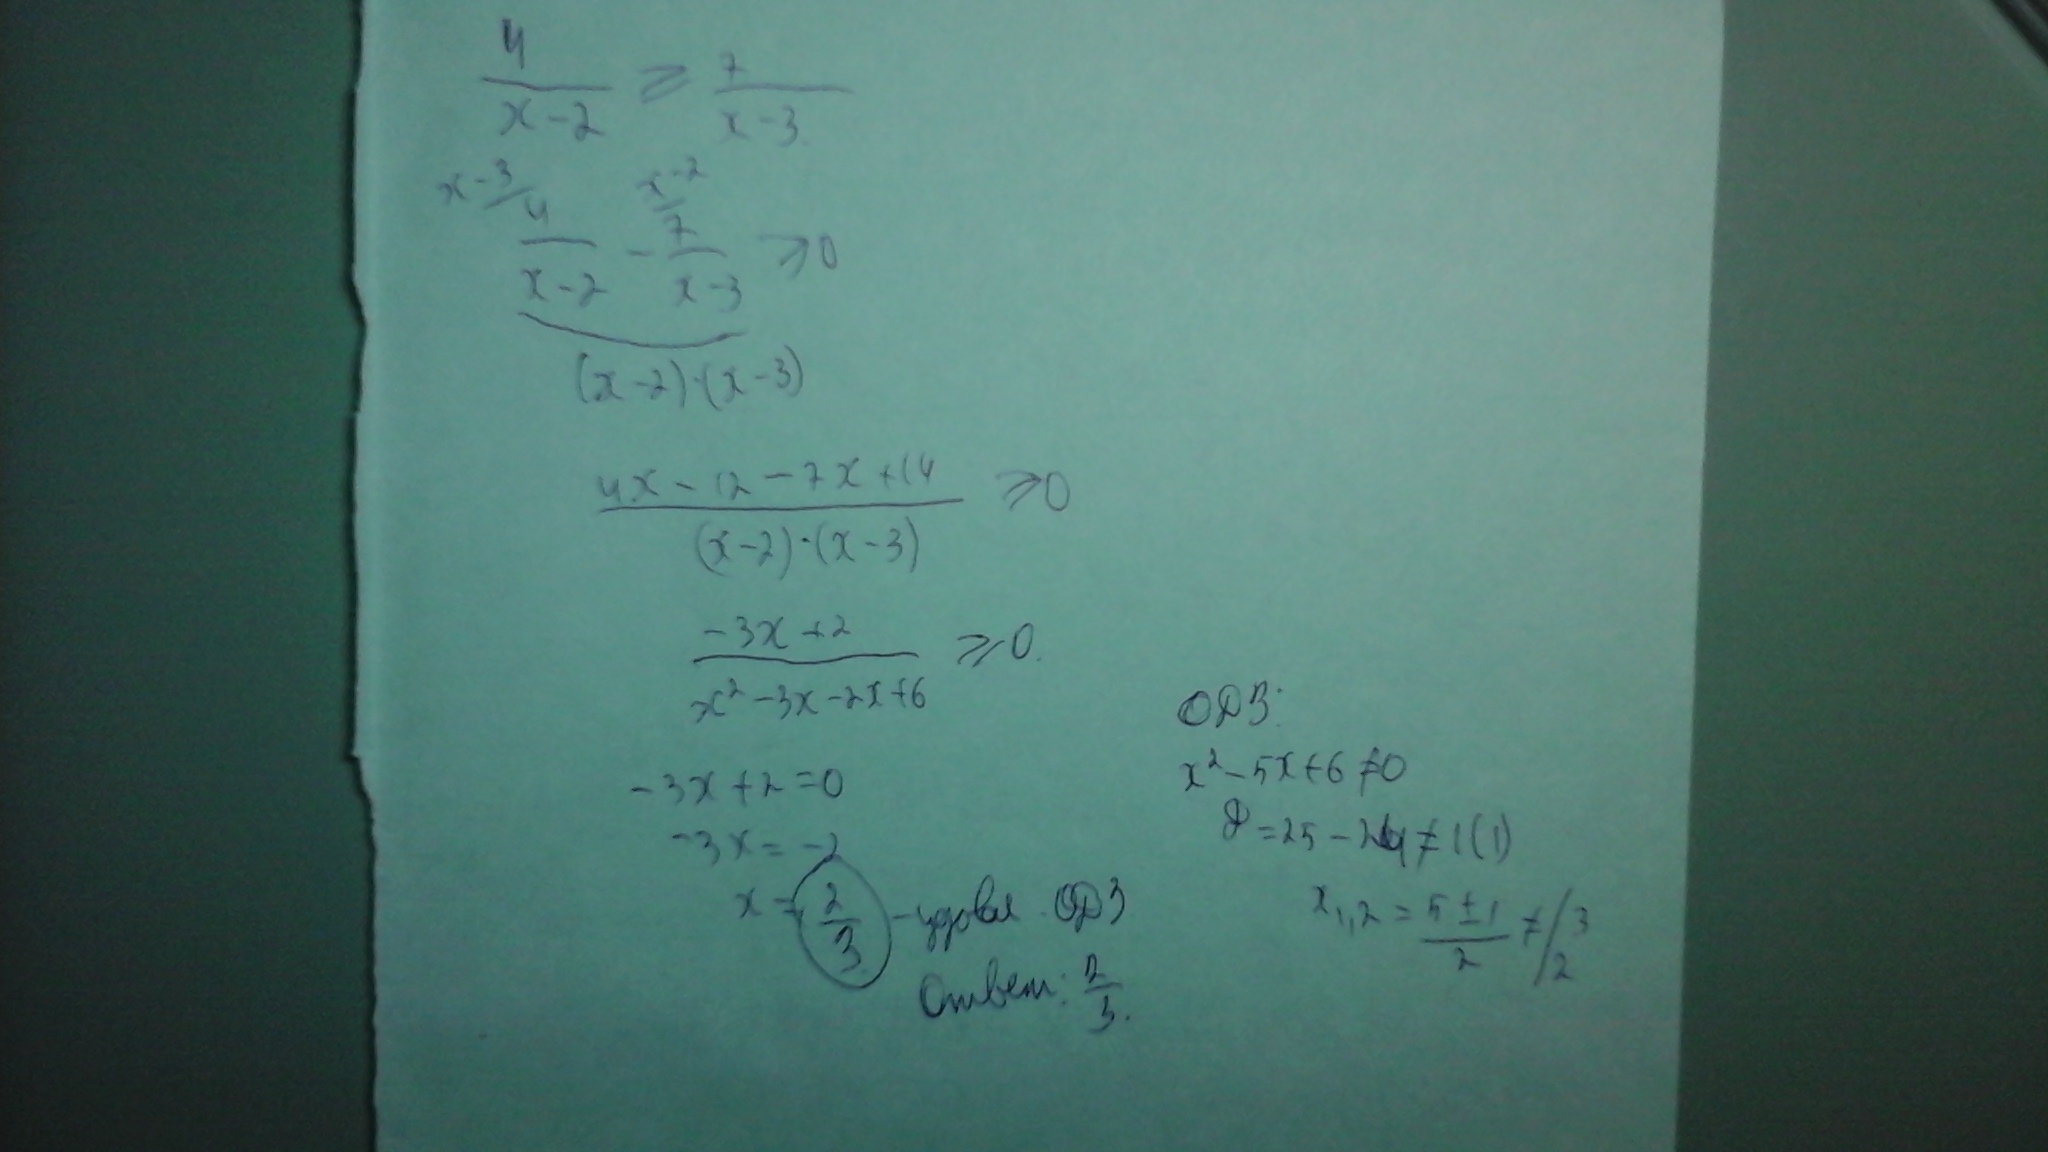 4/(x-2) ⩾ 7/(x-3)
x-3/ 4/(x-2) - x-2/ 7/(x-3) ⩾0
(x-2)·(x-3)
(4x-12-7x+14)/((x-2)·(x-3)) ⩾0
(-3x+2)/(x²-3x-2x+6) ⩾0.
-3x+2=0
-3x=-2
x= 2/3 - удовл. ОДЗ
Ответ: 2/3.
ОДЗ:
x²-5x+6≠0
D=25-24≠1(1)
x1,2= (5±1)/2 ≠ / 3 2